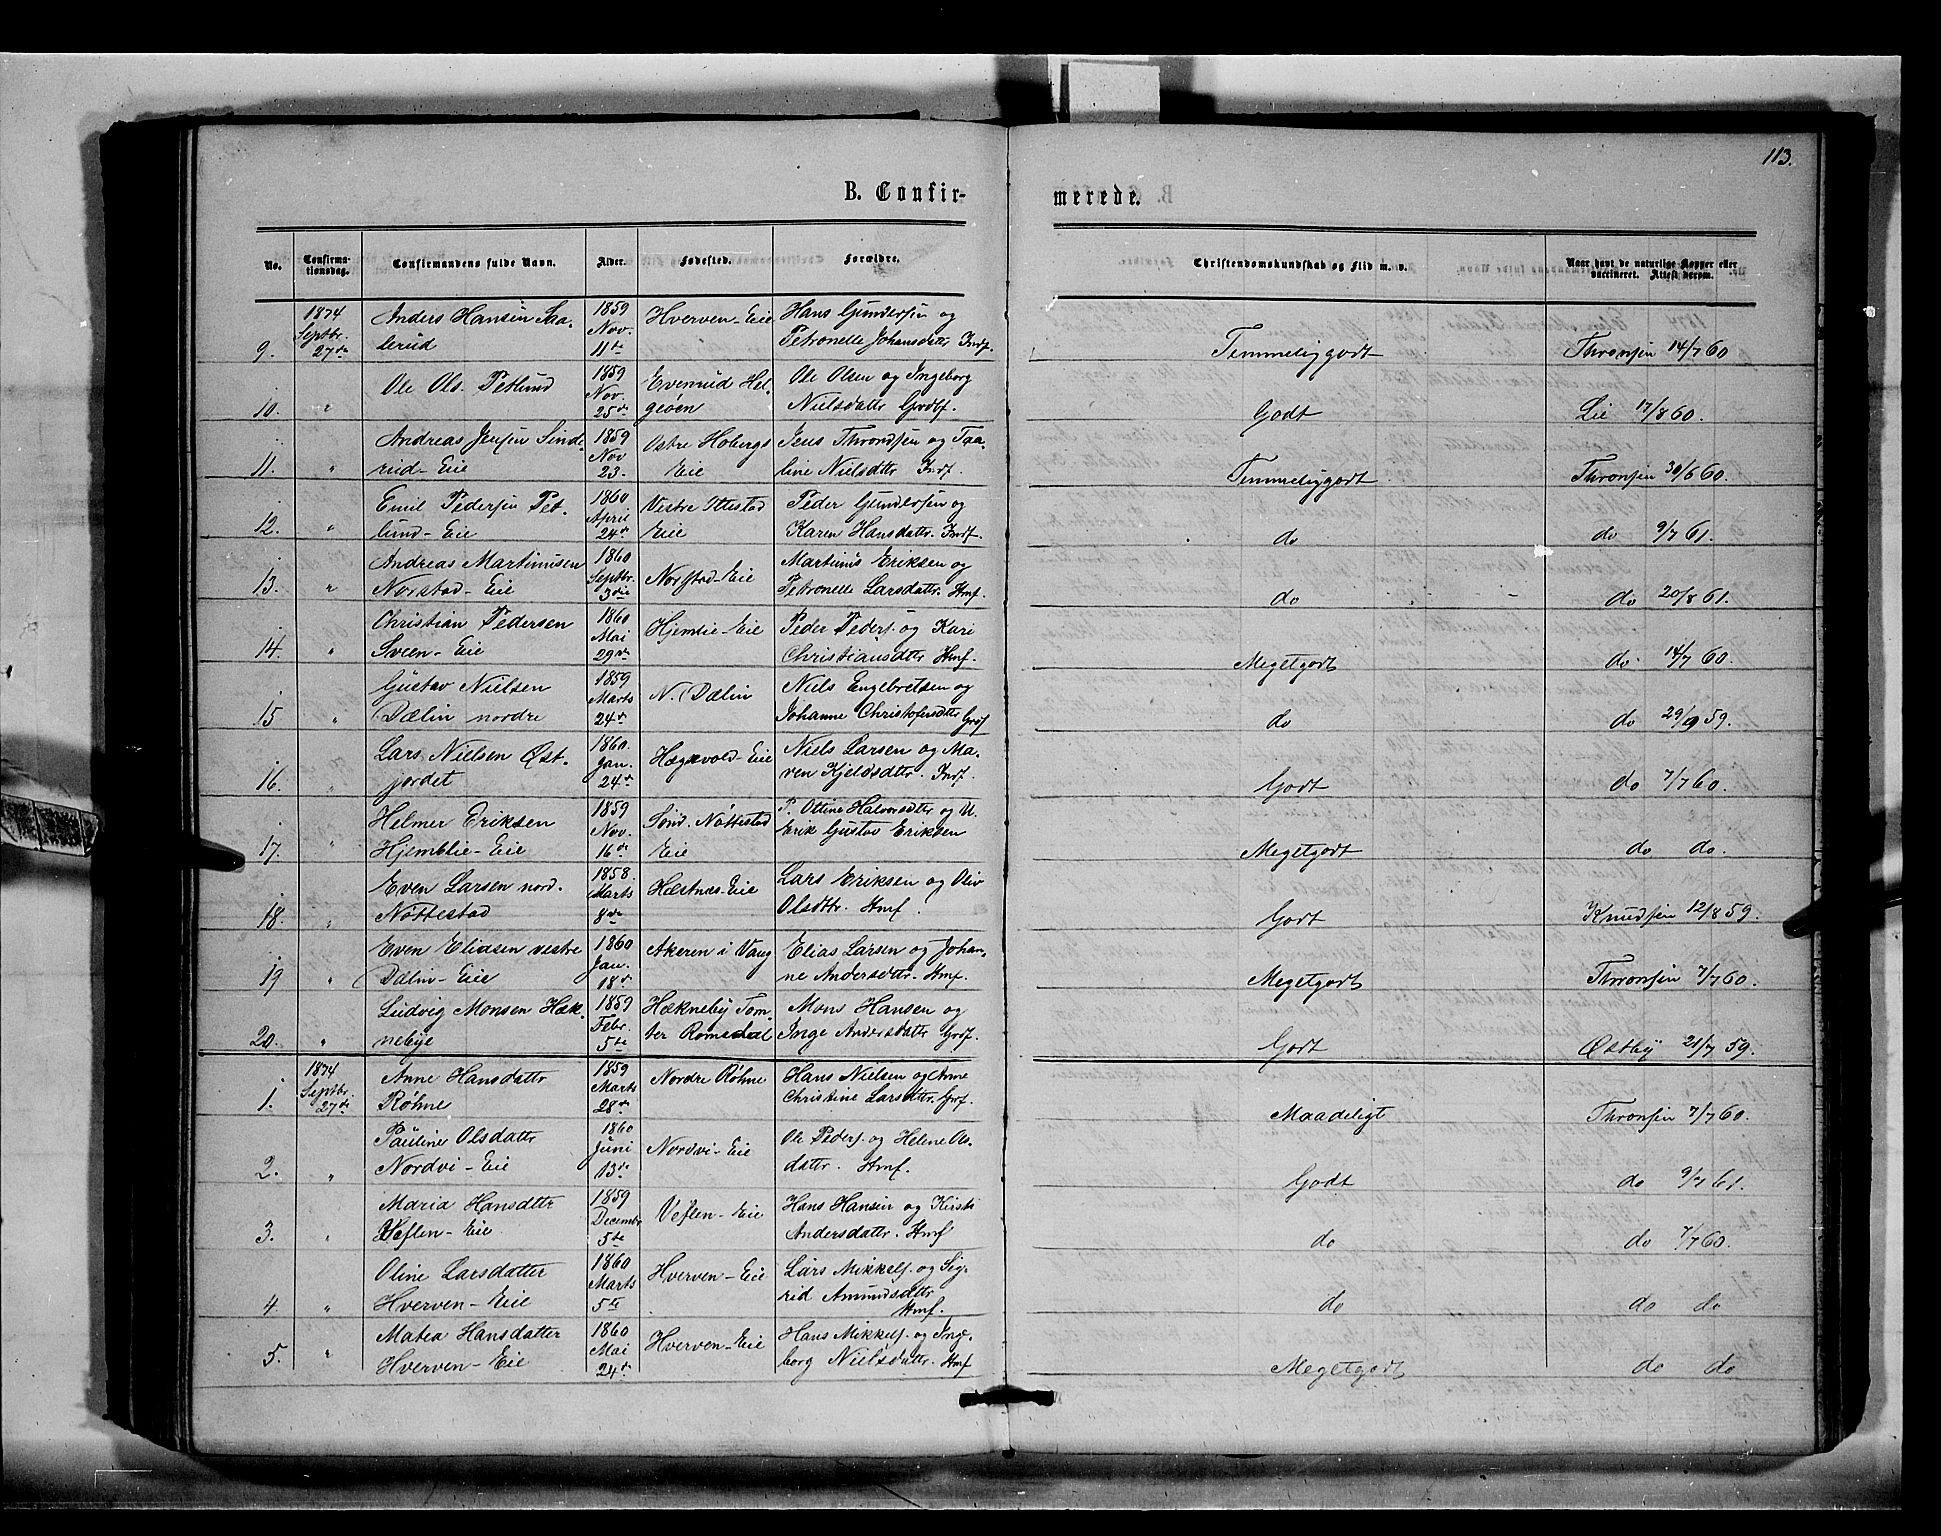 113.
B. Confirmerede.
No. Confirmationsdag. Confirmandens fulde Navn. Alder. Fødested. Forældre. Christendomskundskab og Flid m. v. Naar havt de naturlige Kopper eller vaccineret. Attest derom.
9. 1874 Septbr. 27de Anders Hansen Saaterud 1859 Nov. 11te Hverven-Eie Hans Gundersen og Petronelle Johansdattr Indf. Temmeliggodt Thronsen 14/7 60
10. " Ole Ols. Petlund 1859 Nov. 25de Evenrud Helgeøen Ole Olsen og Ingeborg Nielsdattr Grdbf. Godt Lie 17/8 60.
11. " Andreas Jensen Sinderud-Eie 1859 Nov 23. Østre Hobergs Eie Jens Throndsen og Taaline Nielsdttr Indf. Temmeliggodt Thronsen 30/6 60.
12. " Emil Pedersen Petlund-Eie 1860 April 24de Vestre Ottestad Eie Peder Gundersen og Karen Hansdattr. Indf. do do 9/7 61.
13. " Andreas Martinusen Norstad-Eie 1860 Septbr. 3die Norstad-Eie Martinus Eriksen og Petronelle Larsdattr. Hmf. do do 20/8 61.
14. " Christian Pedersen Sveen-Eie 1860 Mai 29de Hjemlie-Eie Peder Peders. og Kari Christiansdttr Hmf. Megetgodt do 14/7 60.
15 " Gustav Nielsen Dælin nordre 1859 Marts 24de N. Dælin Niels Engebretsen og Johanne Christofersdttr Grdf do do 29/9 59.
16. " Lars Nielsen Østjordet 1860. Jan. 24de Hægsvold-Eie Niels Larsen og Maren Kjeldsdttr. Indf. Godt do 7/7 60.
17. " Helmer Eriksen Hjemblie-Eie 1859 Nov. 16de Sønd. Nöttestad Eie P. Ottine Halvorsdttr og U. Erik Gustav Eriksen Megetgodt do do.
18. " Even Larsen nord. Nöttestad 1858. Marts 8de Hæstnes-Eie Lars Eriksen og Oliv Olsdttr. Hmf. Godt Knudsen 12/8 59.
19 " Even Eliasen vestre Dælin-Eie 1860 Jan. 18de Akeren i Vang Elias Larsen og Johanne Andersdttr. Hmf. Megetgodt Thronsen 7/7 60.
20. " Ludvig Monsen Hæknebye 1859 Febr. 5te Hækneby Tomter Romsdal Mons Hansen og Inge Andersdattr Grdf. Godt Østby 21/7 59.
1. 1874 Septbr. 27de Anne Hansdattr Røhne 1859 Marts 28de Nordre Røhne Hans Nielsen og Anne Christine Larsdttr. Grdf. Maadeligt Thronsen 7/7 60.
2. " Pauline Olsdattr Nordvi-Eie 1860 Juni 13de Nordvi-Eie Ole Peders. og Helene Olsdattr. Hmf. Godt do 9/7 61.
3. " Maria Hansdttr Veflen-Eie. 1859 Decembr 5te Veflen-Eie Hans Hansen og Kirsti Andersdattr. Hmf do do 7/7 60.
4. " Oline Larsdatter Hverven-Eie 1860 Marts 5te Hverven-Eie Lars Mikkels. og Sigrid Amundsdttr Hmf. do do do
5. " Matea Hansdatter Hverven-Eie 1860 Mai 24de Hverven-Eie Hans Mikkels. og Ingeborg Nielsdattr. Hmf Megetgodt do do